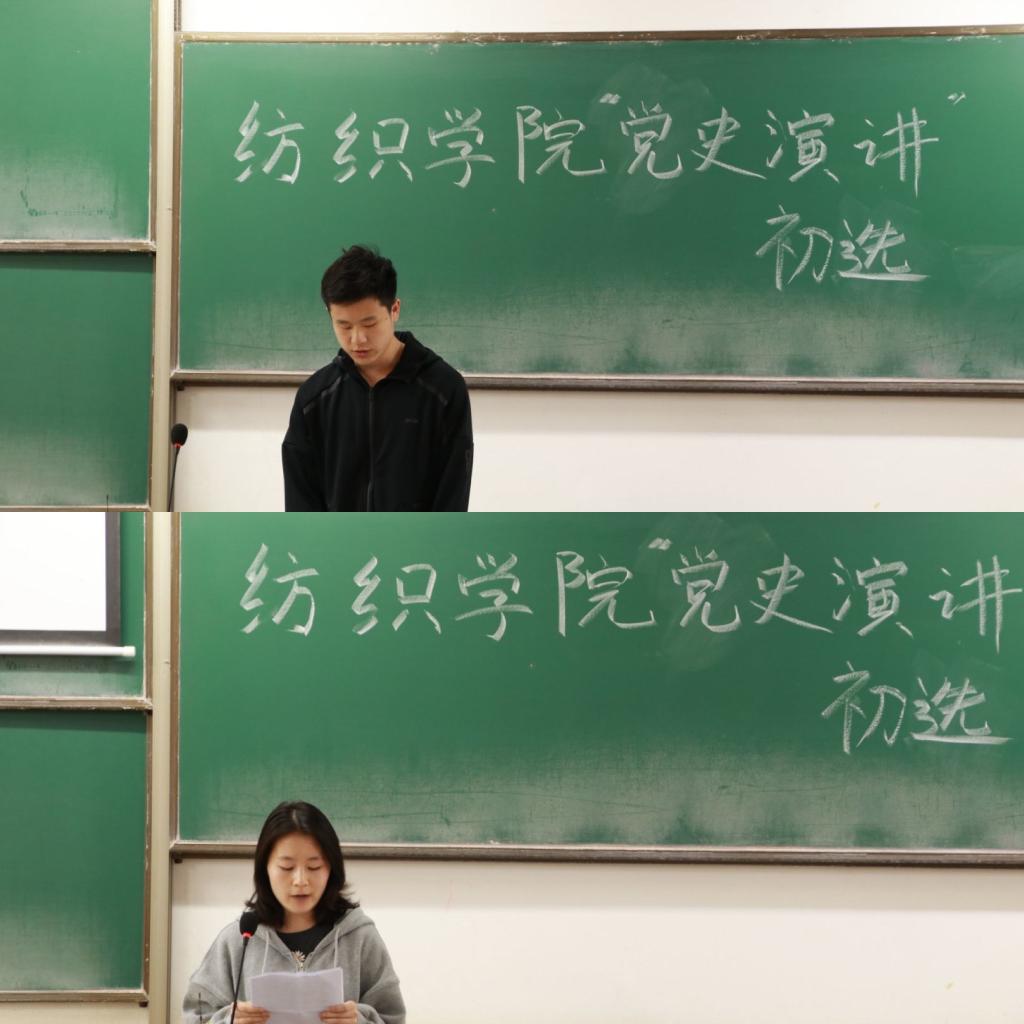 纺织学院“党史演讲”
初选
纺织学院“党史演讲
初选